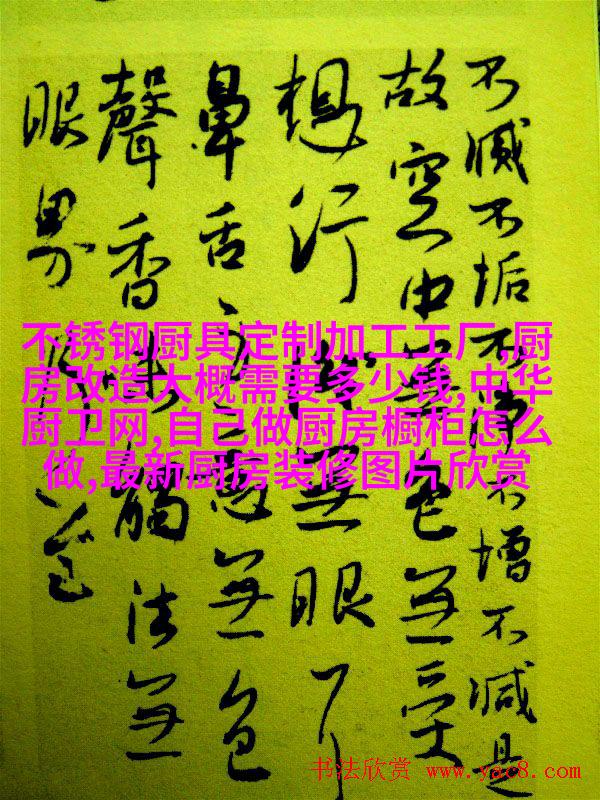 不滅不垢不淨不增不減是
故空中無色無受
想行識無眼耳
鼻舌身意無色
聲香味觸法無
眼界乃
不锈钢厨具定制加工工厂,厨
房改造大概需要多少钱,中华
厨卫网,自己做厨房橱柜怎么
做,最新厨房装修图片欣赏
书法欣赏 www.yac8.com